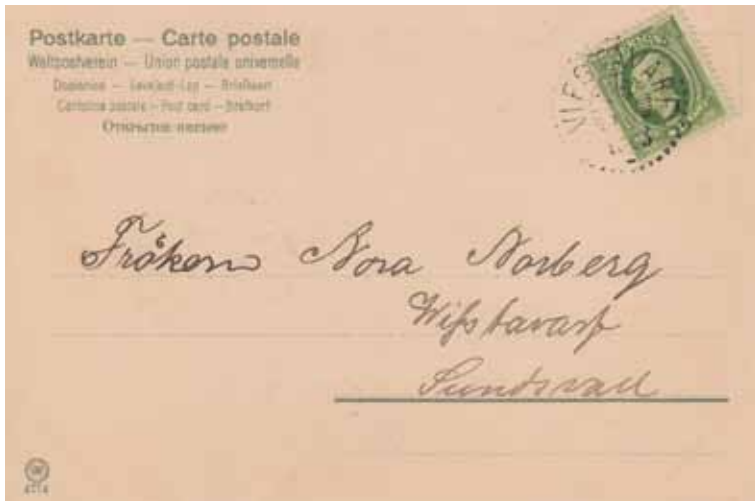 Postkarte — Carte postale
Weltpostverein — Union postale universelle
Dopisnice — Levelező-Lap — Briefkaart
Cartolina postale — Post card — Brefkort
Открытое письмо
Fröken Nora Norberg
Wifstavarf
Sundsvall